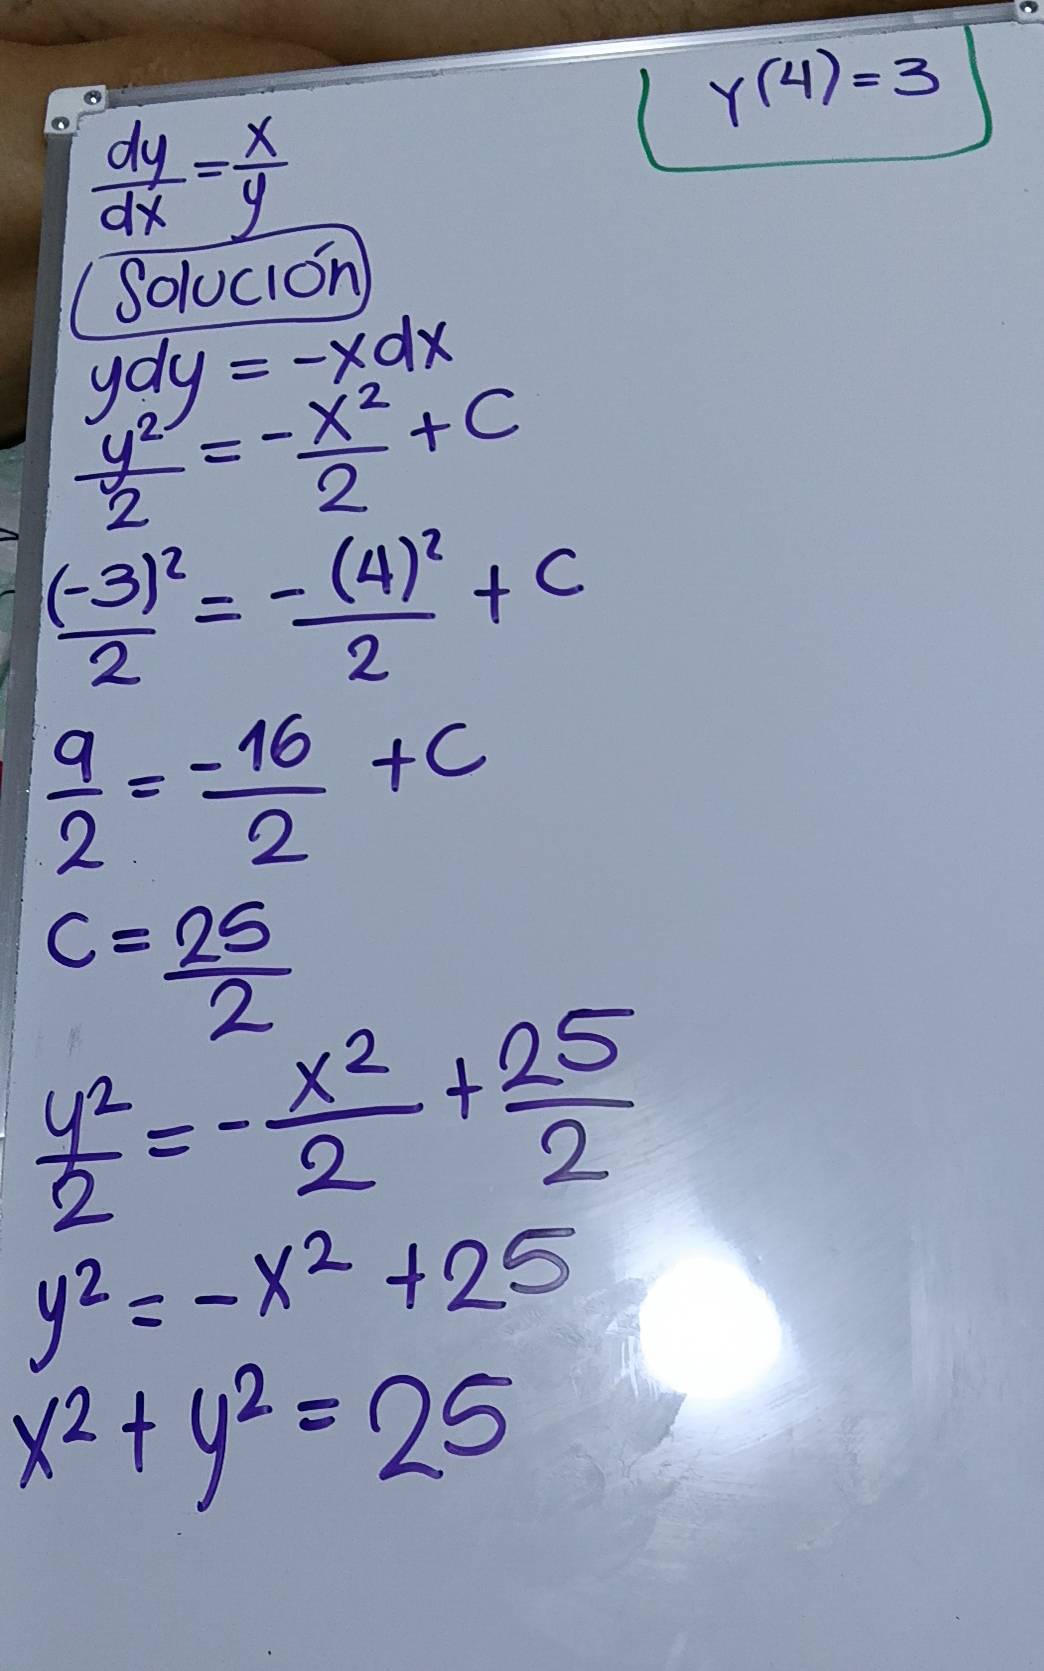 y(4) = 3
dy/dx = x/y
Solución
ydy = -xdx
y²/2 = -x²/2 + C
(-3)²/2 = -(4)²/2 + C
9/2 = -16/2 + C
C = 25/2
y²/2 = -x²/2 + 25/2
y² = -x² + 25
x² + y² = 25